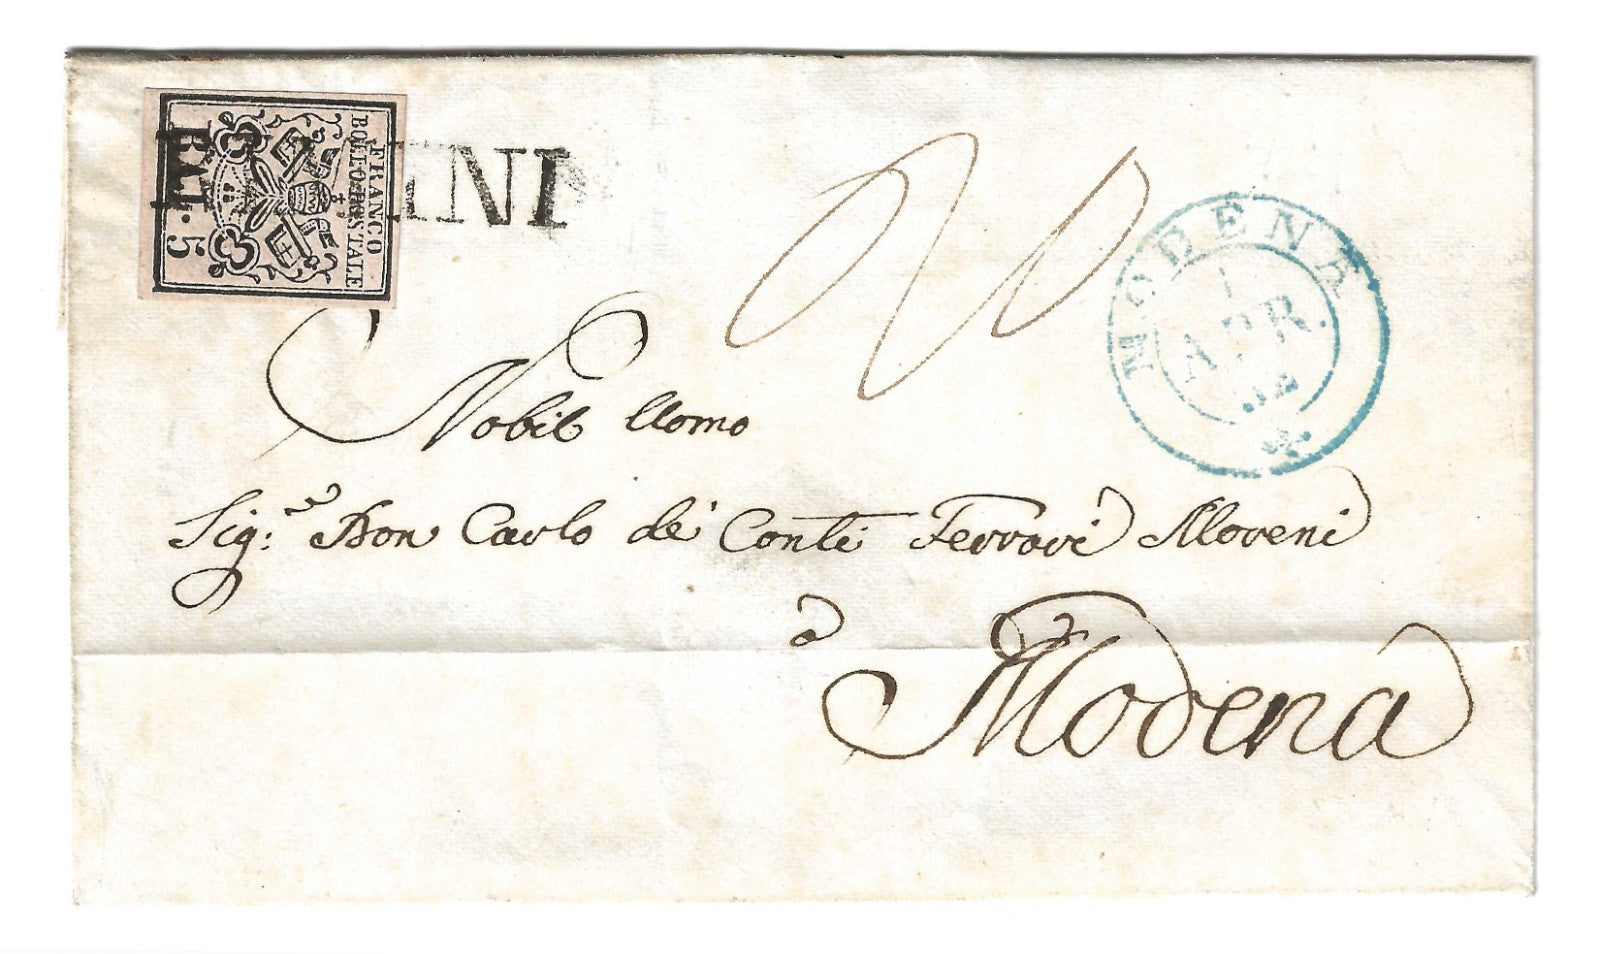 FRANCO
BOLLO POSTALE
BAJ. 5
RIMINI
MODENA
1
APR.
52
Nobil Uomo
Sig:e Don Carlo de' Conti Ferrari Moreni
a
Modena